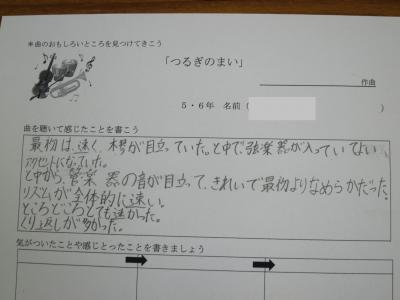 ＊曲のおもしろいところを見つけてきこう
「つるぎのまい」
作曲
５・６年 名前（ ）
曲を聴いて感じたことを書こう
最初は、速く、木琴が目立っていた。と中で、弦楽器が入っていてよい
アクセントになっていた。
と中から、管楽器の音が目立って、きれいで最初よりなめらかだった。
リズムが全体的に速い。
ところどころとても速かった。
くり返しが多かった。
気がついたことや感じとったことを書きましょう